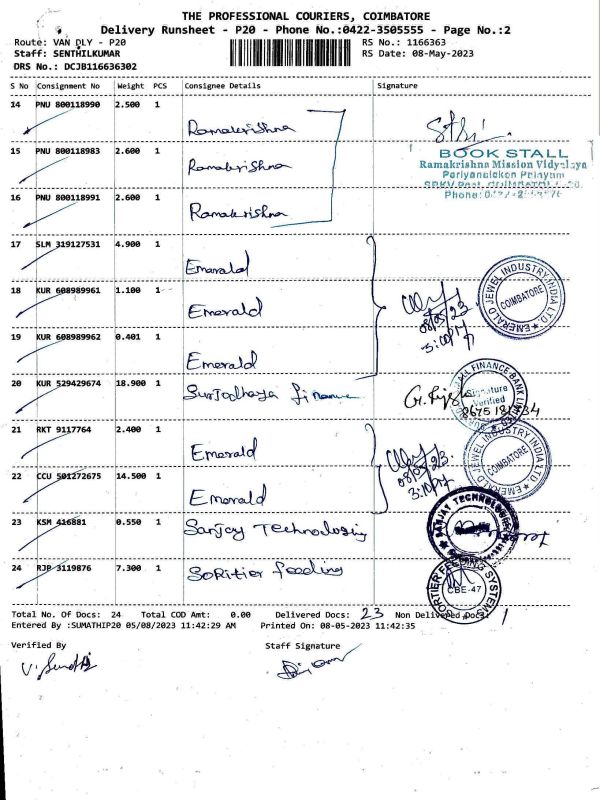 THE PROFESSIONAL COURIERS, COIMBATORE
Delivery Runsheet - P20 - Phone No.:0422-3505555 - Page No.:2
Route: VAN DLY - P20 RS No.: 1166363
Staff: SENTHILKUMAR RS Date: 08-May-2023
DRS No.: DCJB116636302
S No Consignment No Weight PCS Consignee Details Signature
14 PNU 800118990 2.500 1 Ramakrishna
15 PNU 800118983 2.600 1 Ramakrishna
BOOK STALL
Ramakrishna Mission Vidyalaya
Periyanaicken Palayam
16 PNU 800118991 2.600 1 Ramakrishna
Phone:
17 SLM 319127531 4.900 1 Emerald
EMERALD JEWEL INDUSTRY INDIA LTD.
COIMBATORE
18 KUR 608989961 1.100 1 Emerald
08/05/23
3:10
19 KUR 608989962 0.401 1 Emerald
20 KUR 529429674 18.900 1 Suryodhaya finance
FINANCE BANK
Signature
Verified
21 RKT 9117764 2.400 1 Emerald
EMERALD JEWEL INDUSTRY INDIA LTD.
COIMBATORE
08/05/23
3:10
22 CCU 501272675 14.500 1 Emerald
23 KSM 416881 0.550 1 Sanjay Technologiy
SANJAY TECHNOLOGIES
24 RJP 3119876 7.300 1 Soritier feeding
SORTIER FEEDING SYSTEMS
CBE-47
Total No. Of Docs: 24 Total COD Amt: 0.00 Delivered Docs: 23 Non Delivered Docs: 1
Entered By :SUMATHIP20 05/08/2023 11:42:29 AM Printed On: 08-05-2023 11:42:35
Verified By Staff Signature